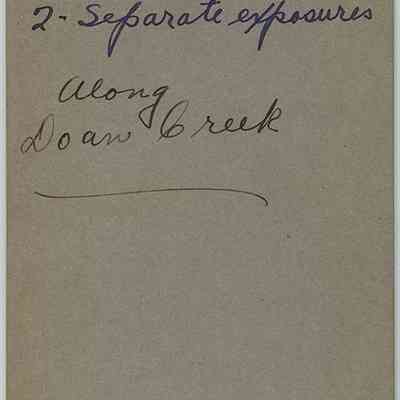 2- Separate exposures
Along
Doan Creek